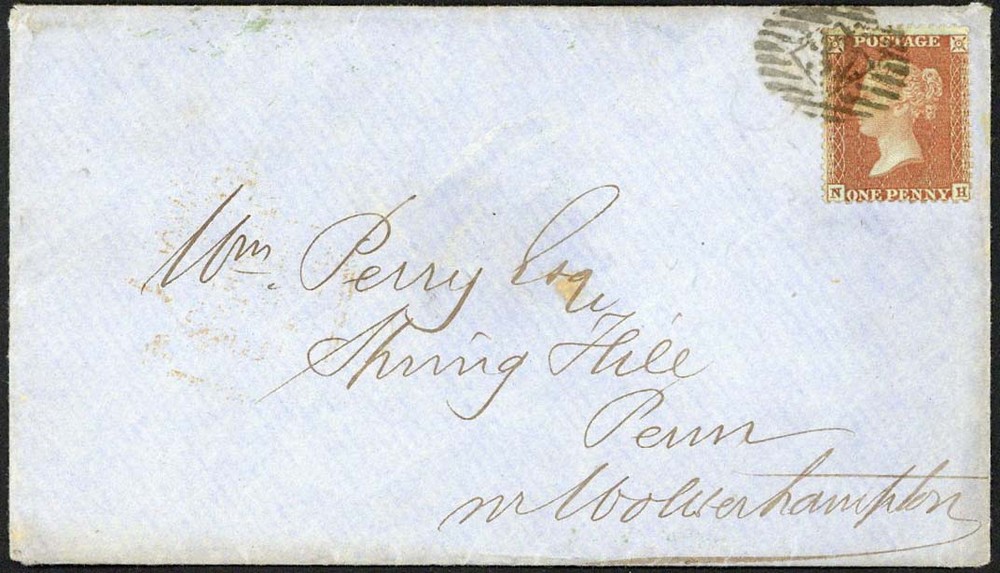 POSTAGE
N ONE PENNY H
Wm. Perry Esq
Spring Hill
Penn
nr Wolverhampton